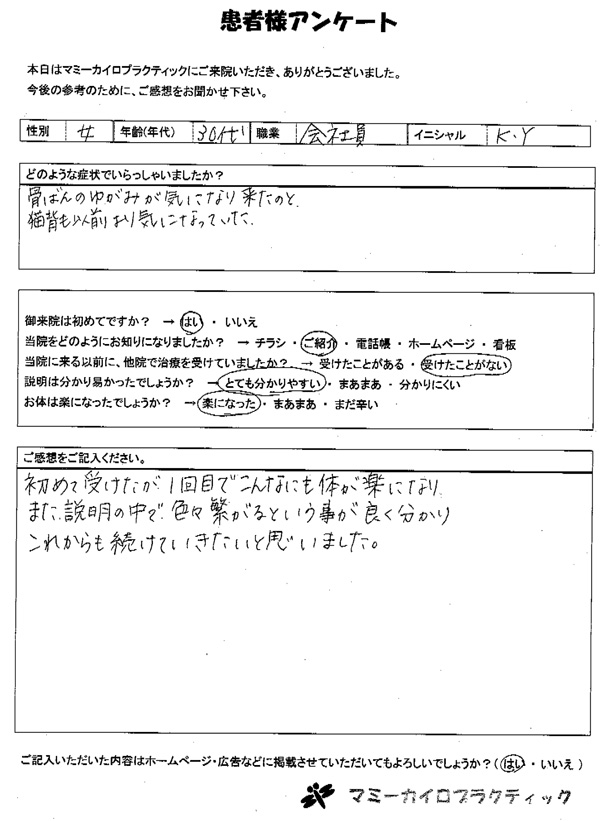 患者様アンケート
本日はマミーカイロプラクティックにご来院いただき、ありがとうございました。
今後の参考のために、ご感想をお聞かせ下さい。
性別 女 年齢(年代) 30代 職業 会社員 イニシャル K・Y
どのような症状でいらっしゃいましたか？
骨ばんのゆがみが気になり来たのと、
猫背も以前より気になっていた。
御来院は初めてですか？ → はい ・ いいえ
当院をどのようにお知りになりましたか？ → チラシ ・ ご紹介 ・ 電話帳 ・ ホームページ ・ 看板
当院に来る以前に、他院で治療を受けていましたか？ → 受けたことがある ・ 受けたことがない
説明は分かり易かったでしょうか？ → とても分かりやすい ・ まあまあ ・ 分かりにくい
お体は楽になったでしょうか？ → 楽になった ・ まあまあ ・ まだ辛い
ご感想をご記入ください。
初めて受けたが、1回目でこんなにも体が楽になり
また、説明の中で、色々繋がるという事が良く分かり
これからも続けていきたいと思いました。
ご記入いただいた内容はホームページ・広告などに掲載させていただいてもよろしいでしょうか？（ はい ・ いいえ ）
マミーカイロプラクティック